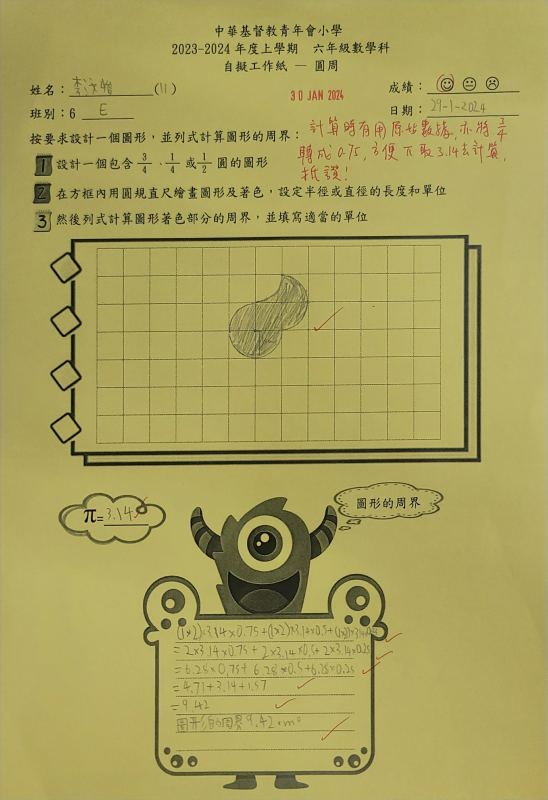 中華基督教青年會小學
2023-2024 年度上學期 六年級數學科
自擬工作紙 — 圓周
姓名：李 (11) 成績：
30 JAN 2024
班別：6 E 日期：29-1-2024
按要求設計一個圖形，並列式計算圖形的周界：
計算時有用原始數據，亦將3/4
轉成0.75，方便下取3.14去計算，
抵讚！
1 設計一個包含 3/4、1/4 或 1/2 圓的圖形
2 在方框內用圓規直尺繪畫圖形及著色，設定半徑或直徑的長度和單位
3 然後列式計算圖形著色部分的周界，並填寫適當的單位
π=3.14
圖形的周界
(1×2)×3.14×0.75+(1×2)×3.14×0.5+(1×2)×3.14×0.25
=2×3.14×0.75+2×3.14×0.5+2×3.14×0.25
=6.28×0.75+6.28×0.5+6.28×0.25
=4.71+3.14+1.57
=9.42
圖形的周界9.42cm